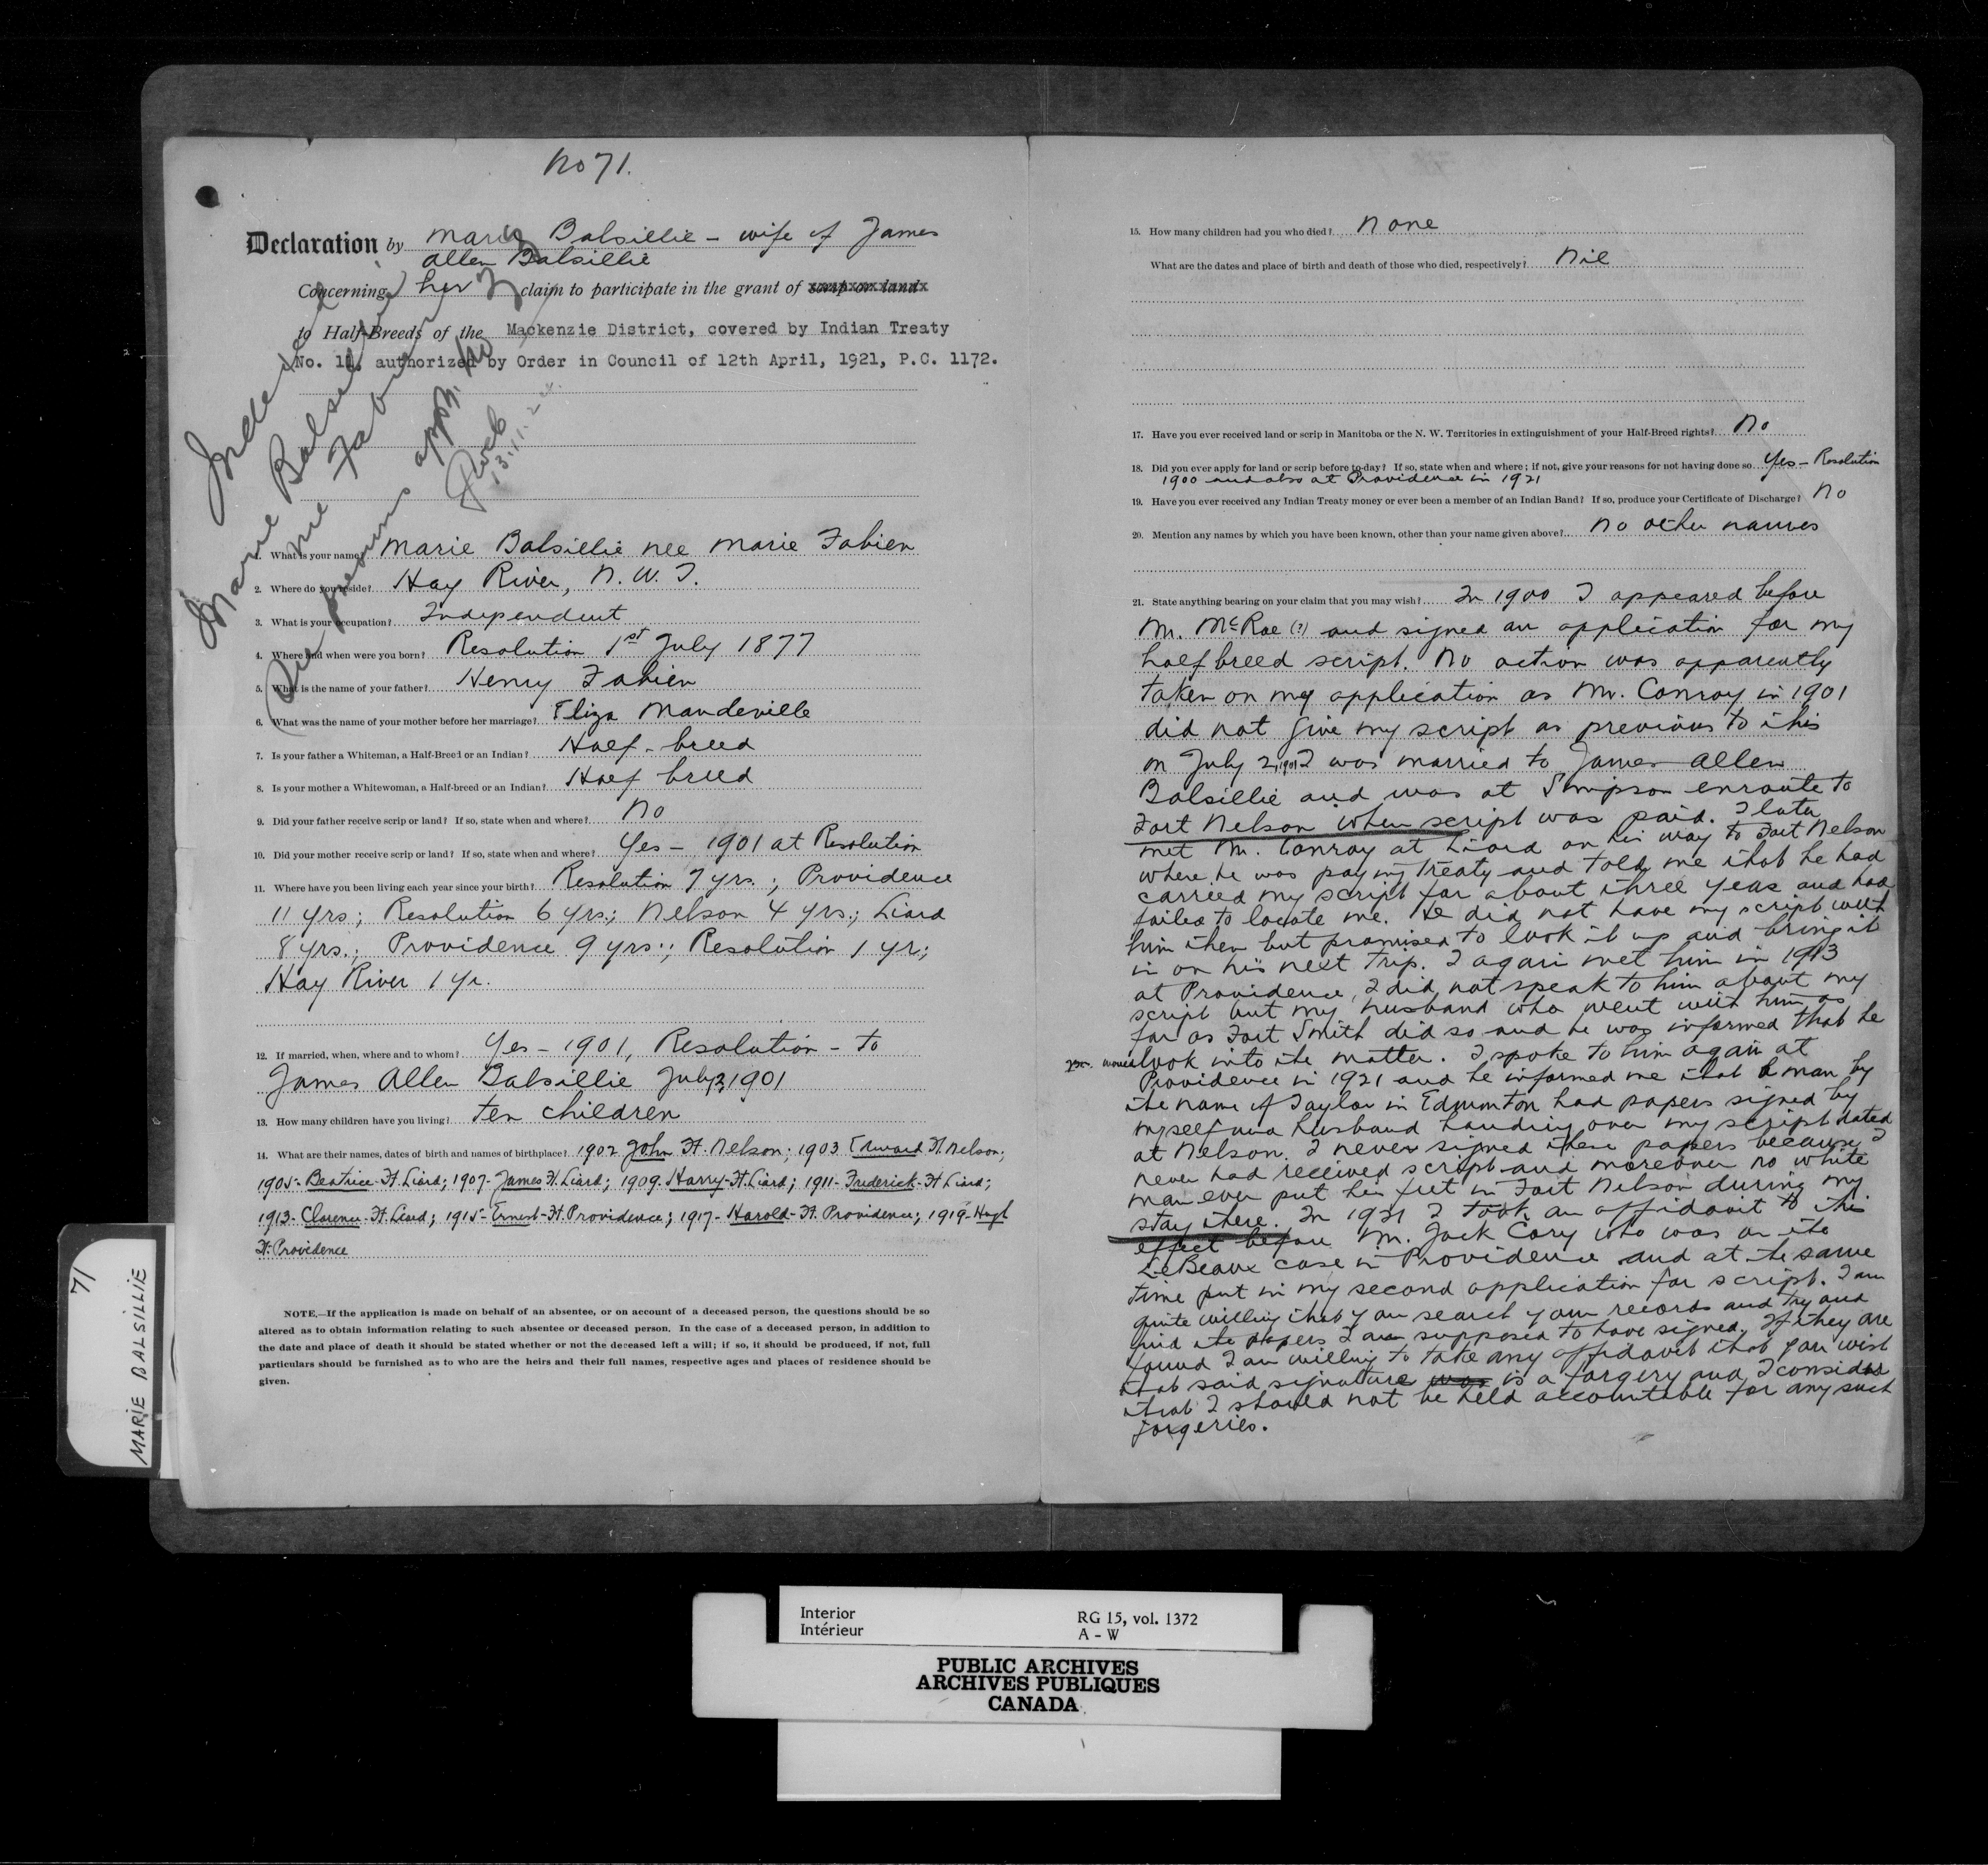 No 71.
Declaration by Marie Balsillie - wife of James
Allen Balsillie
Concerning her claim to participate in the grant of scrip or land
to Half-Breeds of the Mackenzie District, covered by Indian Treaty
No. 11, authorized by Order in Council of 12th April, 1921, P.C. 1172.
Indexed
Marie Balsillie
nee Fabien
See previous appn. No
13.11.24
1. What is your name? Marie Balsillie nee Marie Fabien
2. Where do you reside? Hay River, N.W.T.
3. What is your occupation? Independent
4. Where and when were you born? Resolution 1st July 1877
5. What is the name of your father? Henry Fabien
6. What was the name of your mother before her marriage? Eliza Mandeville
7. Is your father a Whiteman, a Half-Breed or an Indian? Half-breed
8. Is your mother a Whitewoman, a Half-breed or an Indian? Half breed
9. Did your father receive scrip or land? If so, state when and where? No
10. Did your mother receive scrip or land? If so, state when and where? Yes - 1901 at Resolution
11. Where have you been living each year since your birth? Resolution 7 yrs.; Providence
11 yrs; Resolution 6 yrs.; Nelson 4 yrs.; Liard
8 yrs.; Providence 9 yrs.; Resolution 1 yr.;
Hay River 1 yr.
12. If married, when, where and to whom? Yes - 1901, Resolution - to
James Allen Balsillie July 2, 1901
13. How many children have you living? ten children
14. What are their names, dates of birth and names of birthplace? 1902 John Ft. Nelson; 1903 Edward Ft Nelson;
1905- Beatrice-Ft. Liard; 1907- James Ft. Liard; 1909 Harry-Ft. Liard; 1911- Frederick-Ft Liard;
1913- Clarence-Ft. Liard; 1915- Ernest-Ft. Providence; 1917- Harold-Ft. Providence; 1919- Hugh
Ft. Providence
NOTE.—If the application is made on behalf of an absentee, or on account of a deceased person, the questions should be so
altered as to obtain information relating to such absentee or deceased person. In the case of a deceased person, in addition to
the date and place of death it should be stated whether or not the deceased left a will; if so, it should be produced, if not, full
particulars should be furnished as to who are the heirs and their full names, respective ages and places of residence should be
given.
71
MARIE BALSILLIE
15. How many children had you who died? None
What are the dates and place of birth and death of those who died, respectively? Nil
17. Have you ever received land or scrip in Manitoba or the N. W. Territories in extinguishment of your Half-Breed rights? No
18. Did you ever apply for land or scrip before to-day? If so, state when and where; if not, give your reasons for not having done so Yes - Resolution
1900 and also at Providence in 1921
19. Have you ever received any Indian Treaty money or ever been a member of an Indian Band? If so, produce your Certificate of Discharge? No
20. Mention any names by which you have been known, other than your name given above? No other names
21. State anything bearing on your claim that you may wish? In 1900 I appeared before
Mr. McRae (?) and signed an application for my
half breed script. No action was apparently
taken on my application as Mr. Conroy in 1901
did not give my script as previous to this
on July 2, 1901 I was married to James Allen
Balsillie and was at Simpson enroute to
Fort Nelson when script was paid. I later
met Mr. Conroy at Liard on his way to Fort Nelson
where he was paying Treaty and told me that he had
carried my script for about three years and had
failed to locate me. He did not have my script with
him then but promised to look it up and bring it
in on his next trip. I again met him in 1913
at Providence, I did not speak to him about my
script but my husband who went with him as
far as Fort Smith did so and he was informed that he
would look into the matter. I spoke to him again at
Providence in 1921 and he informed me that a man by
the name of Taylor in Edmonton had papers signed by
myself and husband handing over my script dated
at Nelson. I never signed these papers because I
never had received script and moreover no white
man ever put his feet in Fort Nelson during my
stay there. In 1921 I took an affidavit to this
effect before Mr. Jack Cory who was on the
LeBeaux case in Providence and at the same
time put in my second application for script. I am
quite willing that you search your records and try and
find the papers I am supposed to have signed. If they are
found I am willing to take any affidavit that you wish
that said signature was is a forgery and I consider
that I should not be held accountable for any such
forgeries.
Interior
Intérieur
RG 15, vol. 1372
A - W
PUBLIC ARCHIVES
ARCHIVES PUBLIQUES
CANADA